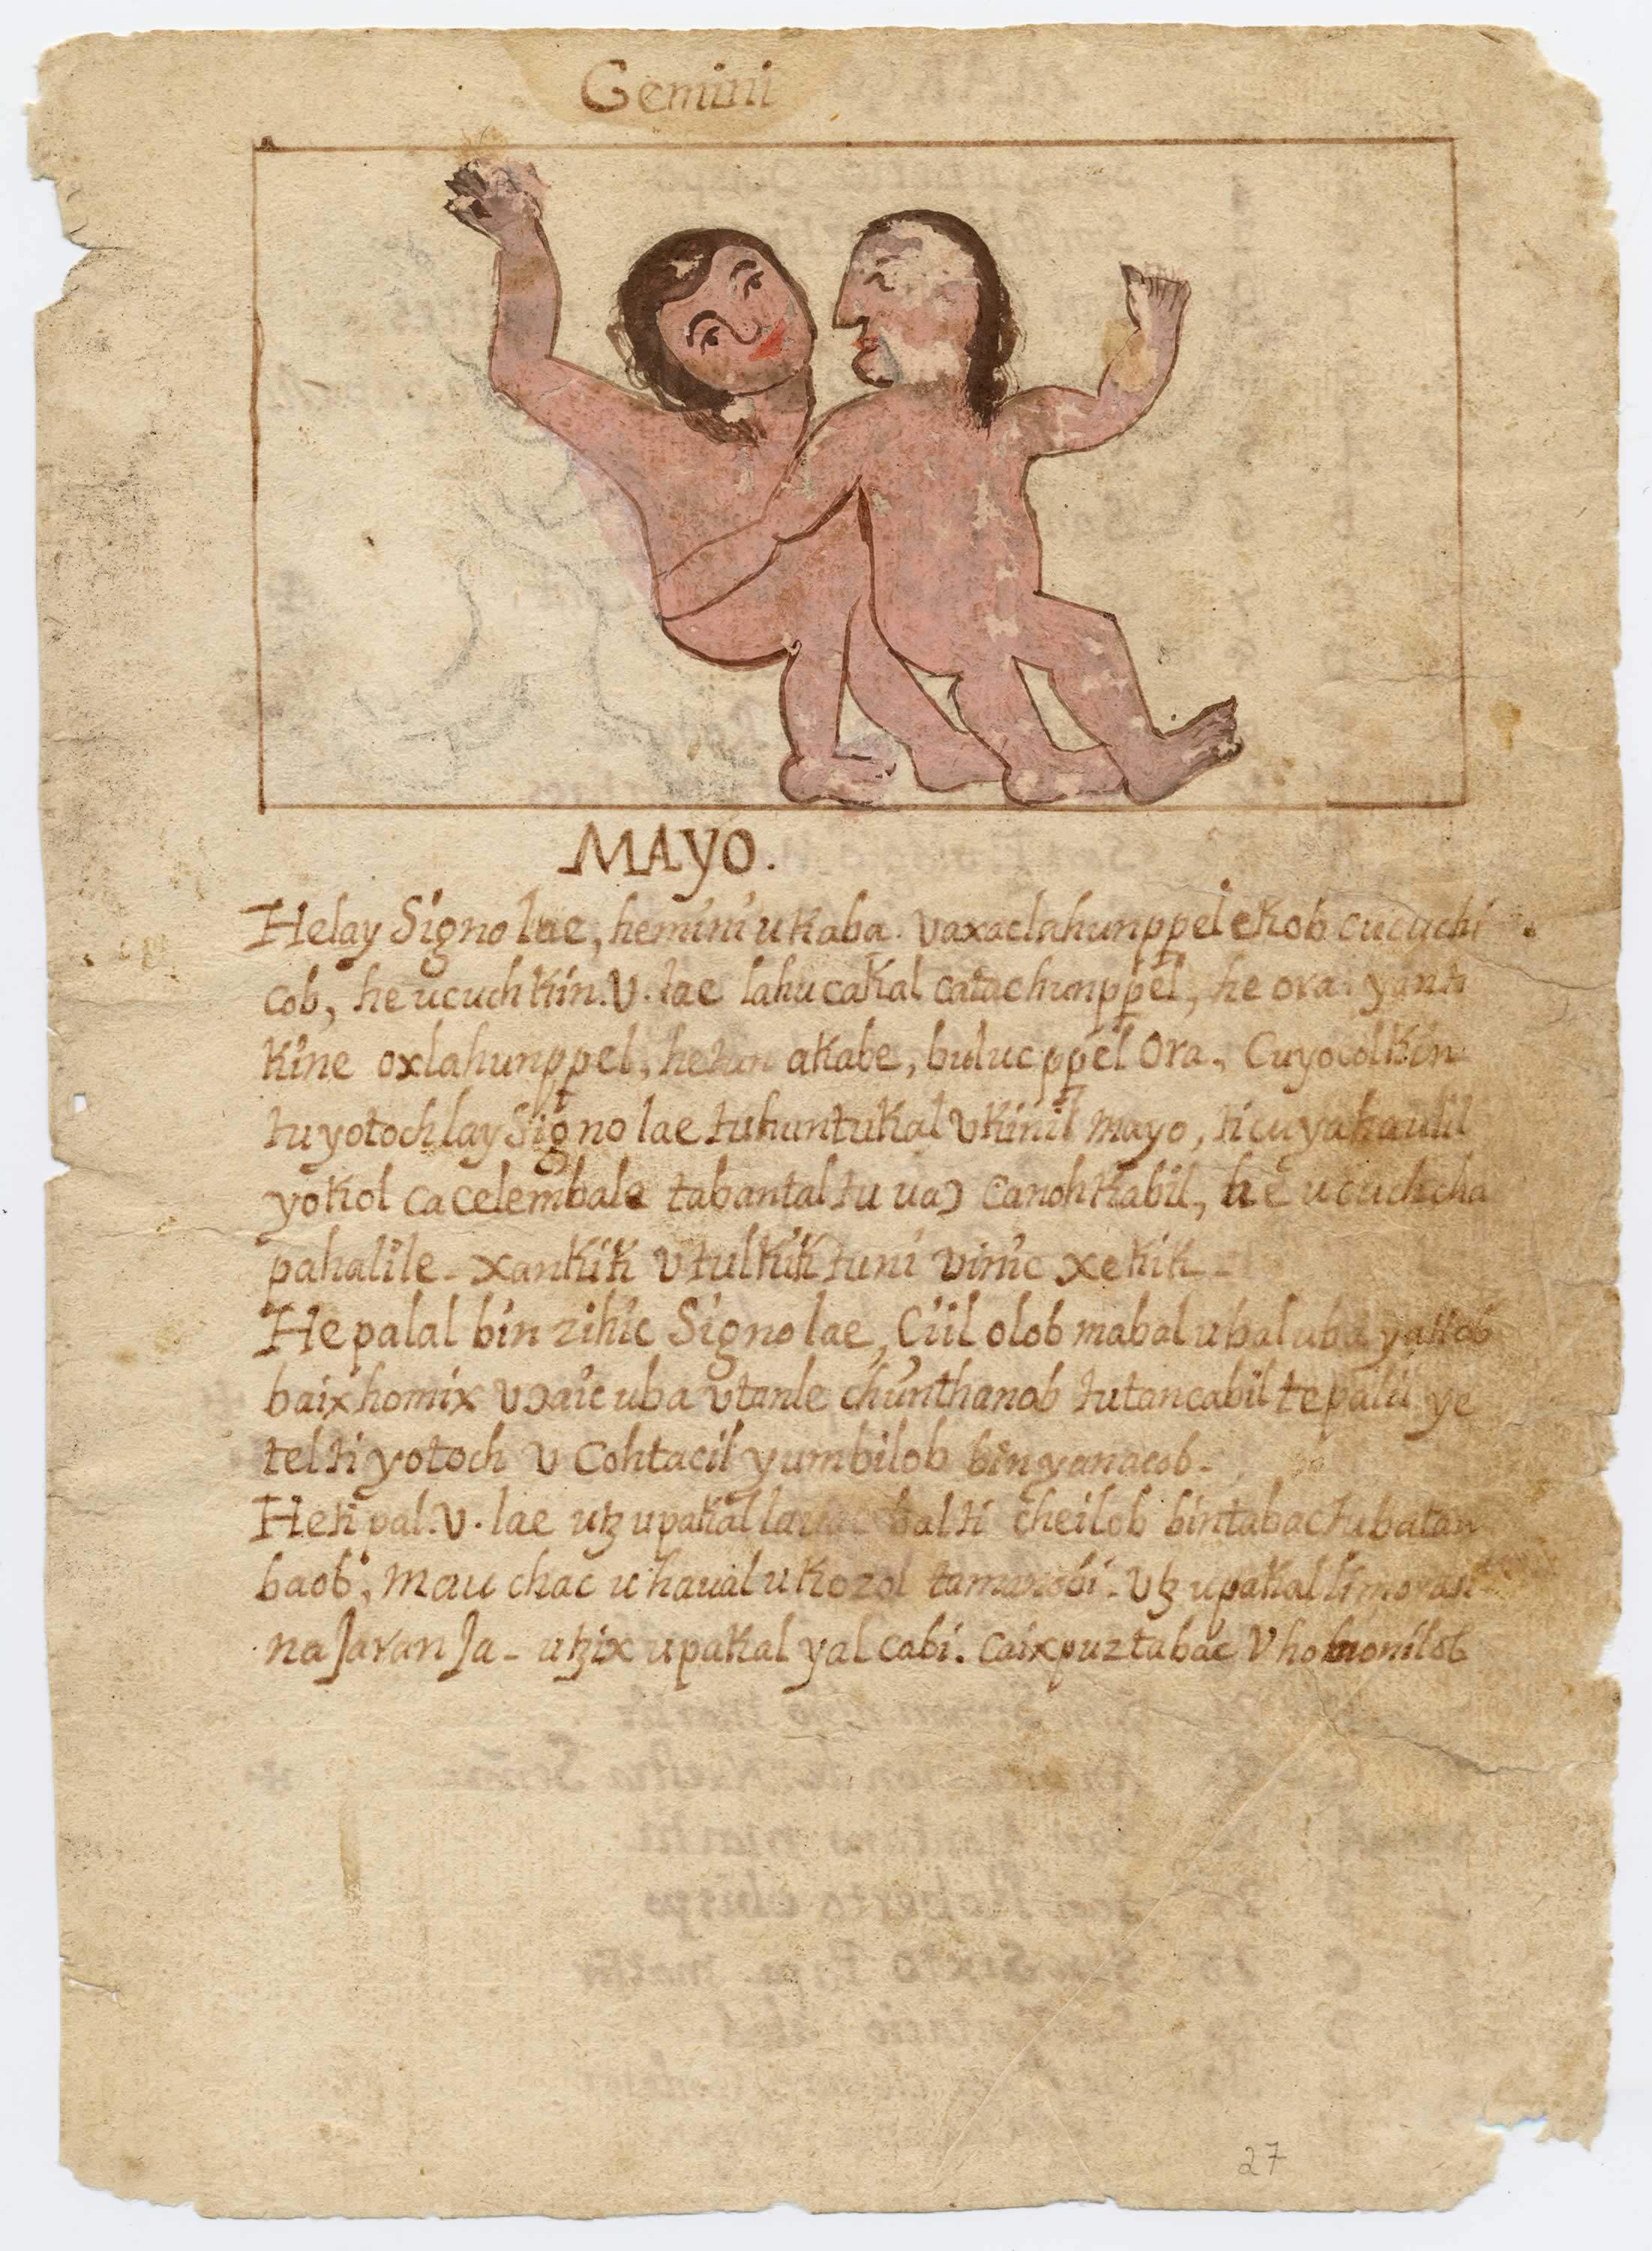 Gemini
MAYO.
Helay Signo lae, hemini u kaba. vaxaclahunppel ekob cucuchi
cob, he ucuch kin. V. lae lahucakal catachunppel, he ora yanti
kine oxlahunppel, hetun akabe, buluc ppel Ora, Cuyocol kin
tuyotoch lay Signo lae tuhuntukal Vkinil mayo, ticuyahaulil
yokol ca celembale tabantal tu uaɔ canohkabil, he ucuchcha
pahalile - xankik Vtulkik tuni vinic xekik -
He palal bin zihic Signo lae, Ciil olob mabal ubal uba
baixhomix Vɔaic uba Vtanle chunthanob tutancabil tepalil ye
tel ti yotoch V Cohtacil yumbilob binyanacob -
Heti pal. V. lae utz upakal balti cheilob bintabac tubatan
baob, Mau chac u haual u kozol - Vtz upakal limoras
na Jaran Ja - utzix upakal yalcabi. Caixpuztabac V
27